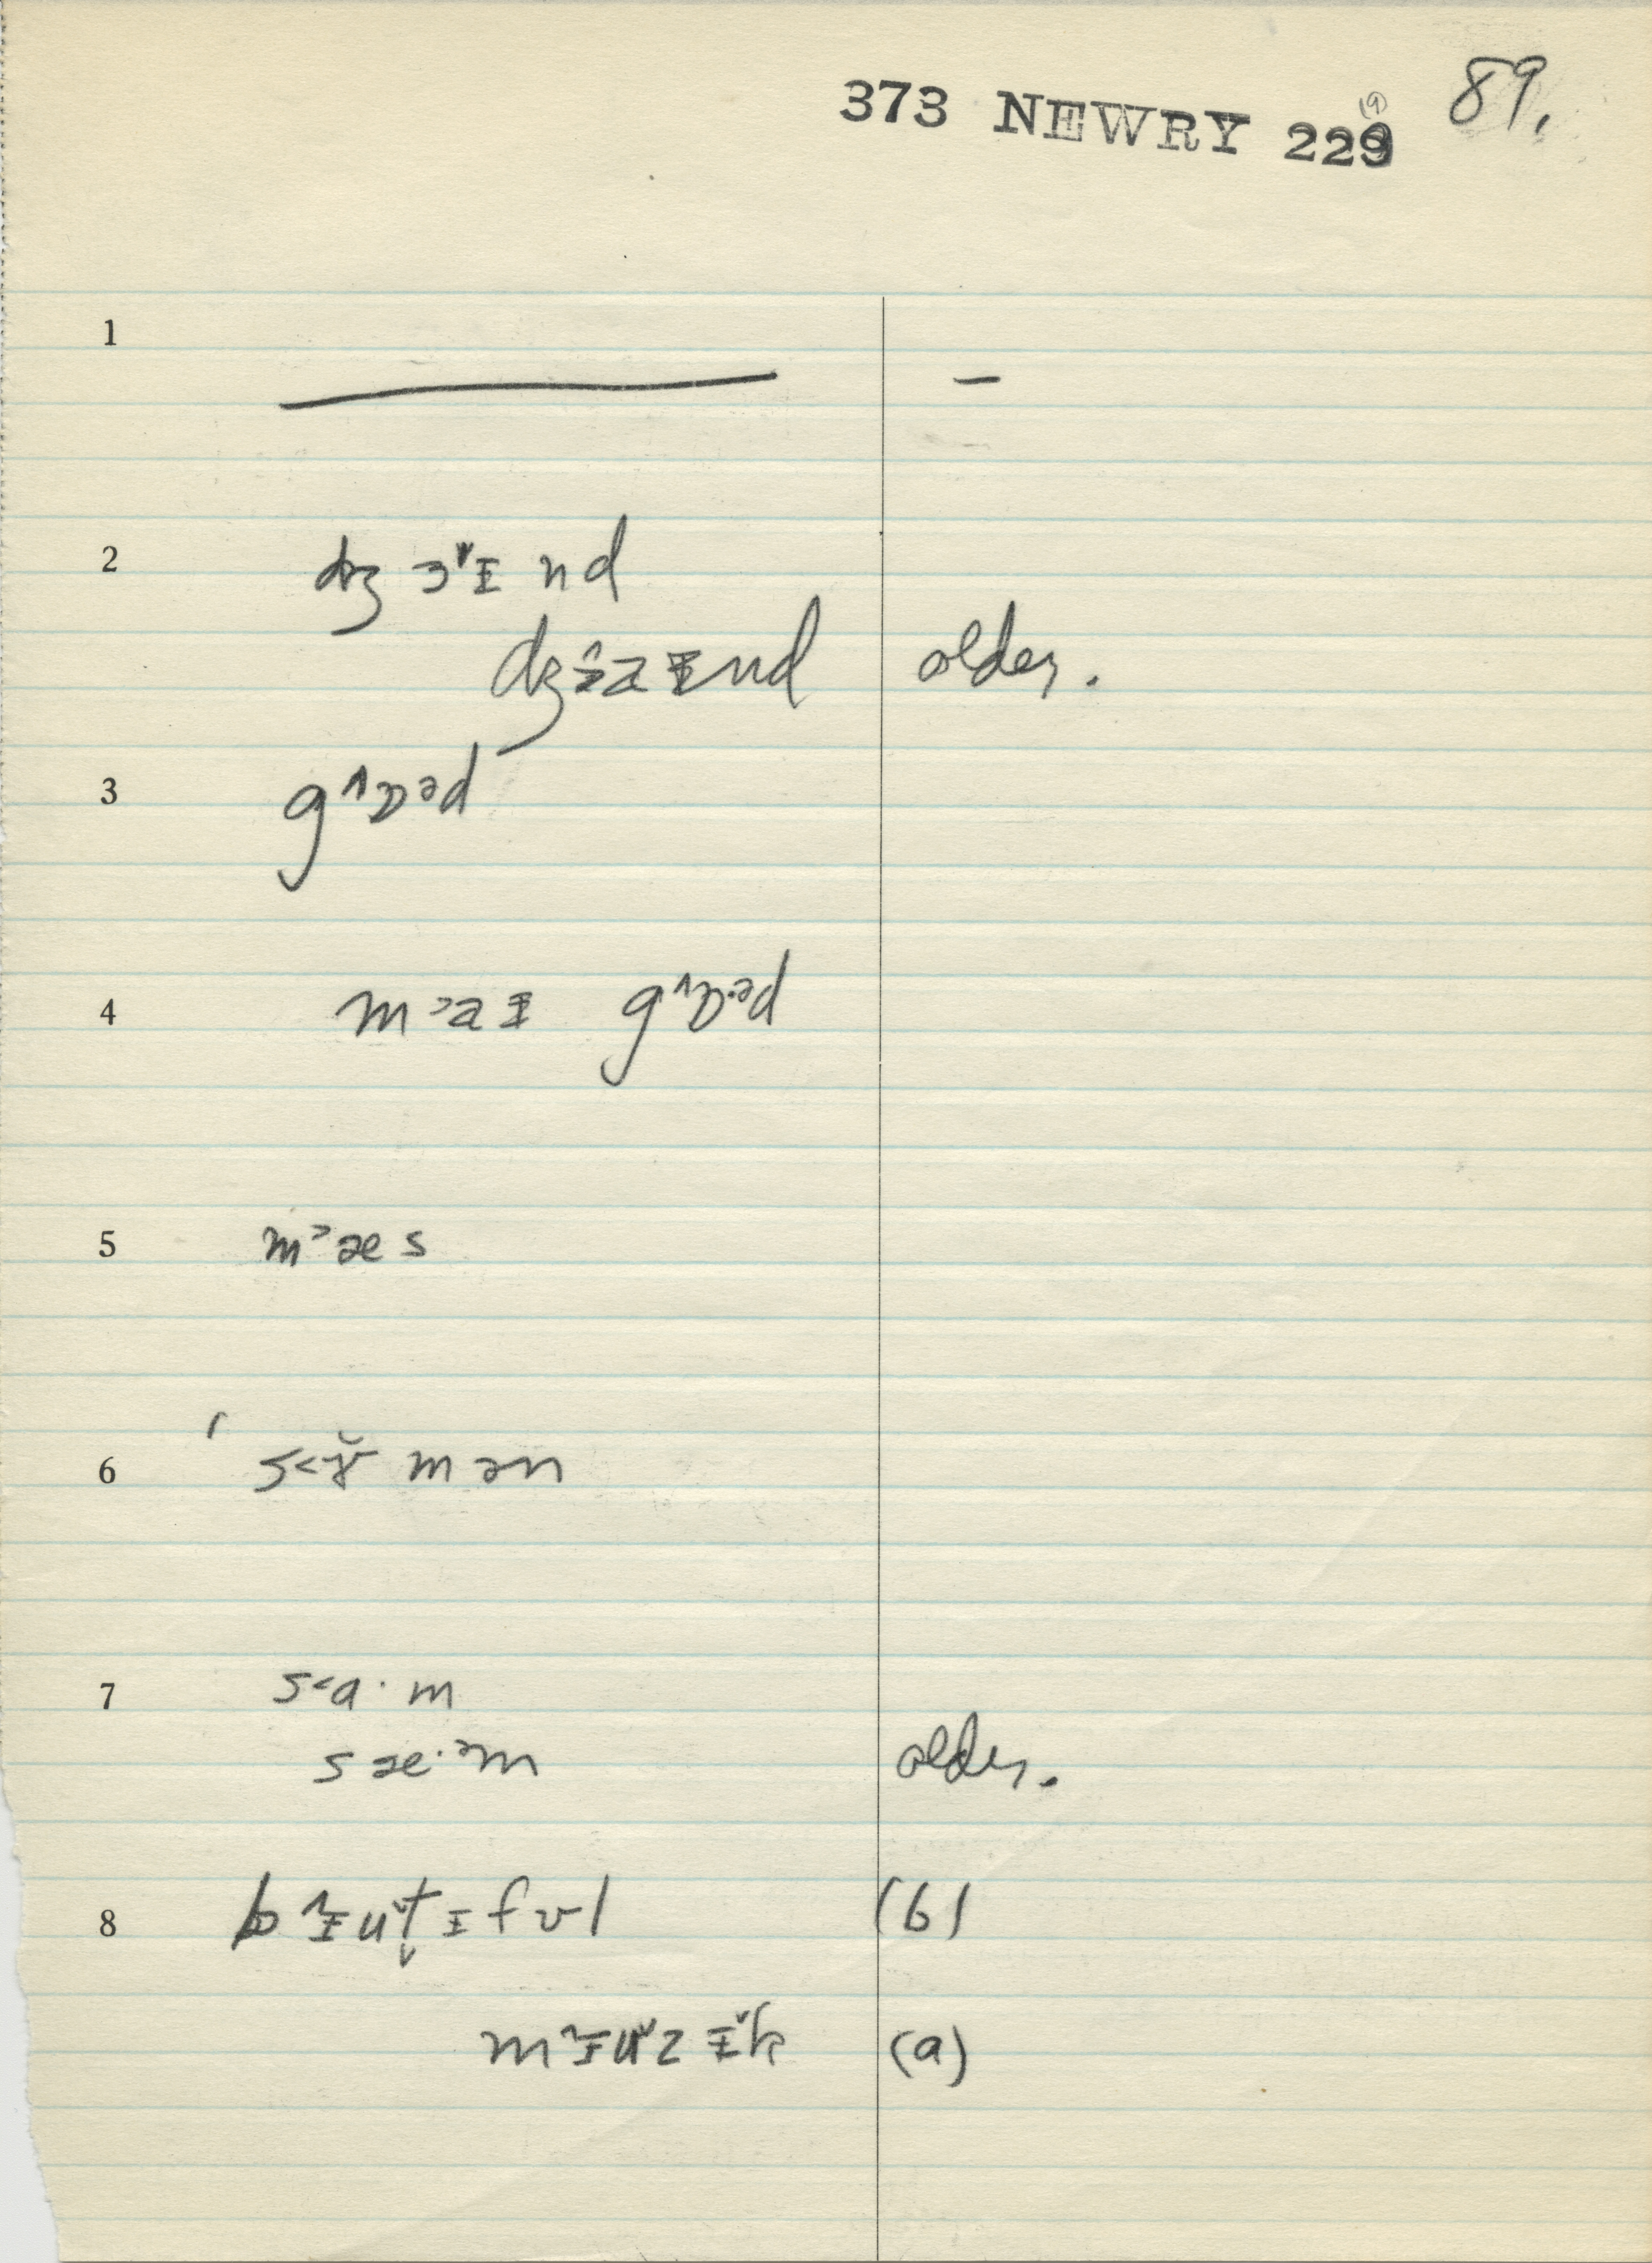 373 NEWRY 229 89.
1 —
2 dʒ ɔ˅ɪ nd
dʒɔ^aɪnd older.
3 g^ɒəd
4 m˃aɪ g^ɒ·əd
5 m˃æs
6 ˈs˂ɤ̆ mən
7 s˂a· m
sæ·əm older.
8 b^ɪut̬ɪfʊl (b)
m^ɪu˅zɪ˅k (a)